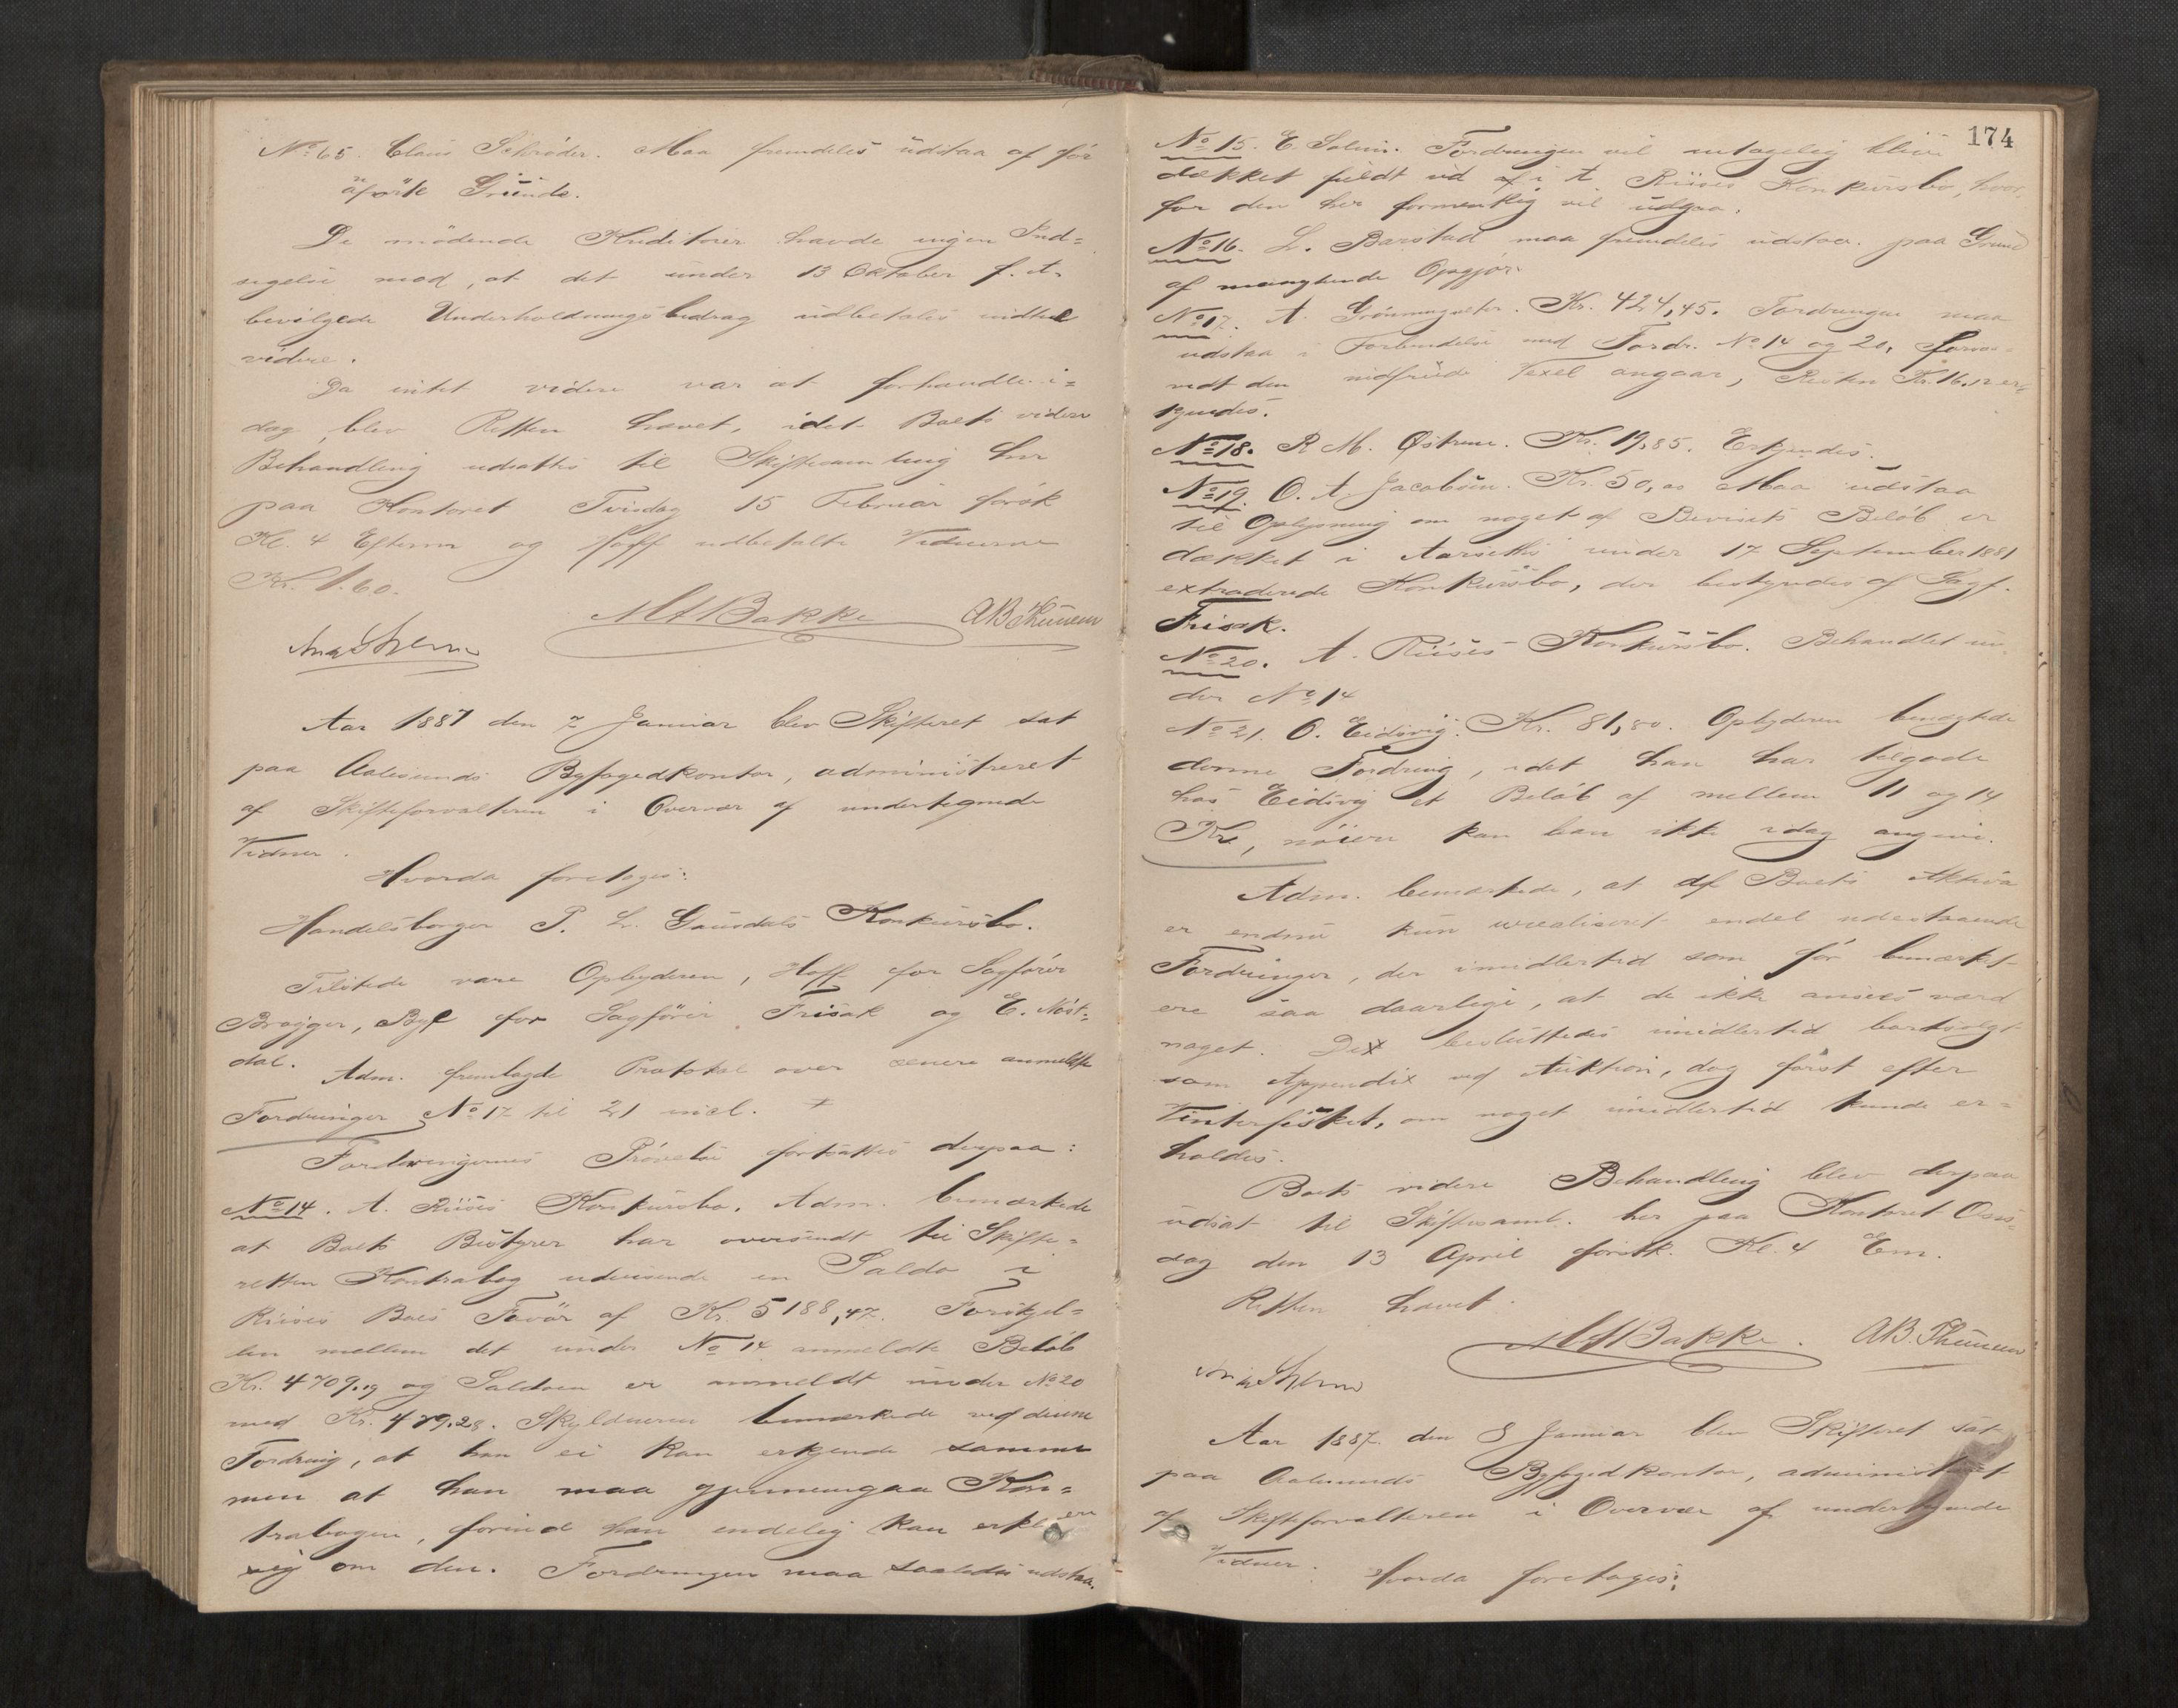 No 65. Claus Schröder. Maa fremdeles udstaa af før
anførte Grunde.
De mödende Kreditorer havde ingen Ind-
sigelse mod, at det under 13 Oktober f. A.
bevilgede Underholdningsbidrag udbetales indtil
videre.
Da intet videre var at forhandle i-
dag, blev Retten hævet, idet Boets videre
Behandling udsattes til Skiftesamling her
paa Kontoret Tirsdag 15 Februar förstk
Kl. 4 Efterm og Hoff udbetalte Vidnerne
Kr. 1.60.
Bakke A B Thunem
Aar 1887 den 7 Januar blev Skifteret sat
paa Aalesunds Byfogedkontor, administreret
af Skifteforvalteren i Overvær af undertegnede
Vidner.
Hvorda foretoges:
Handelsborger P. L. Gausdals Konkursbo.
Tilstede vare Opbyderen, Hoff for Sagförer
Brøgger, Byf for Sagförer Frisak og E. Nöst-
dal.
Adm. fremlagde Protokol over senere anmeldte
Fordringer No 17 til 21 incl.
Fordringernes Prövelse fortsattes derpaa:
No 14. A. Riises Konkursbo. Adm. bemærkede
at Boets Bestyrer har oversendt til Skifte-
retten Kontrabog udvisende en Saldo i
Riises Boes Favör af Kr. 5188,47. Forskjel-
len mellem det under No 14 anmeldte Belöb
Kr. 4709.19 og Saldoen er anmeldt under No 20
med Kr. 479.28. Skyldneren bemærkede ved denne
Fordring, at han ei kan erkjende samme
men at han maa gjennemgaa Kon-
trabogen, forind han endelig kan erklære
sig om den. Fordringen maa saaledes udstaa.
174
No 15. E. Solem. Fordringen vil antagelig blive
dækket fuldt ud i A. Riises Konkursbo, hvor-
for den her formentlig vil udgaa.
No 16. L. Barstad maa fremdeles udstaa paa Grund
af manglende Opgjör.
No 17. A. Grönmyrsæter. Kr. 424,45. Fordringen maa
udstaa i Forbindelse med Fordr. No 14 og 20, forsaa-
vidt den Vexel angaar, Resten Kr. 16.12 er-
kjendes.
No 18. R M. Östrem. Kr. 19,85. Erkjendes.
No 19. O. A. Jacobsen. Kr. 50,00 Maa udstaa
til Oplysning om noget af Bevisets Belöb er
dækket i Aarseths under 17 September 1881
extraderede Konkursbo, der bestyredes af Sagf.
Frisak.
No 20. A. Riises Konkursbo. Behandlet un-
der No 14
No 21. O. Eidsvig. Kr. 81,80. Opbyderen benægtede
denne Fordring, idet han har tilgode
hos Eidsvig et Belöb af mellem 11 og 14
Kr, nöiere kan han ikke idag angive.
Adm. bemærkede, at af Boets Aktiva
er endnu kun urealiseret endel udestaaende
Fordringer, der imidlertid som før bemærket
ere saa daarlige, at de ikke ansees værd
noget. Det besluttedes imidlertid bortsolgt
som Appendix ved Auktion, dog først efter
Vinterfisket, om noget imidlertid kunde er-
holdes.
Boets videre Behandling blev derpaa
udsat til Skiftesaml. her paa Kontoret Ons-
dag den 13 April förstk. Kl. 4 Em.
Retten hævet.
Bakke. A B. Thunem
Aar 1887 den 8 Januar blev Skifteret sat
paa Aalesunds Byfogedkontor, administreret
af Skifteforvalteren i Overvær af undertegnede
Vidner. Hvorda foretoges: